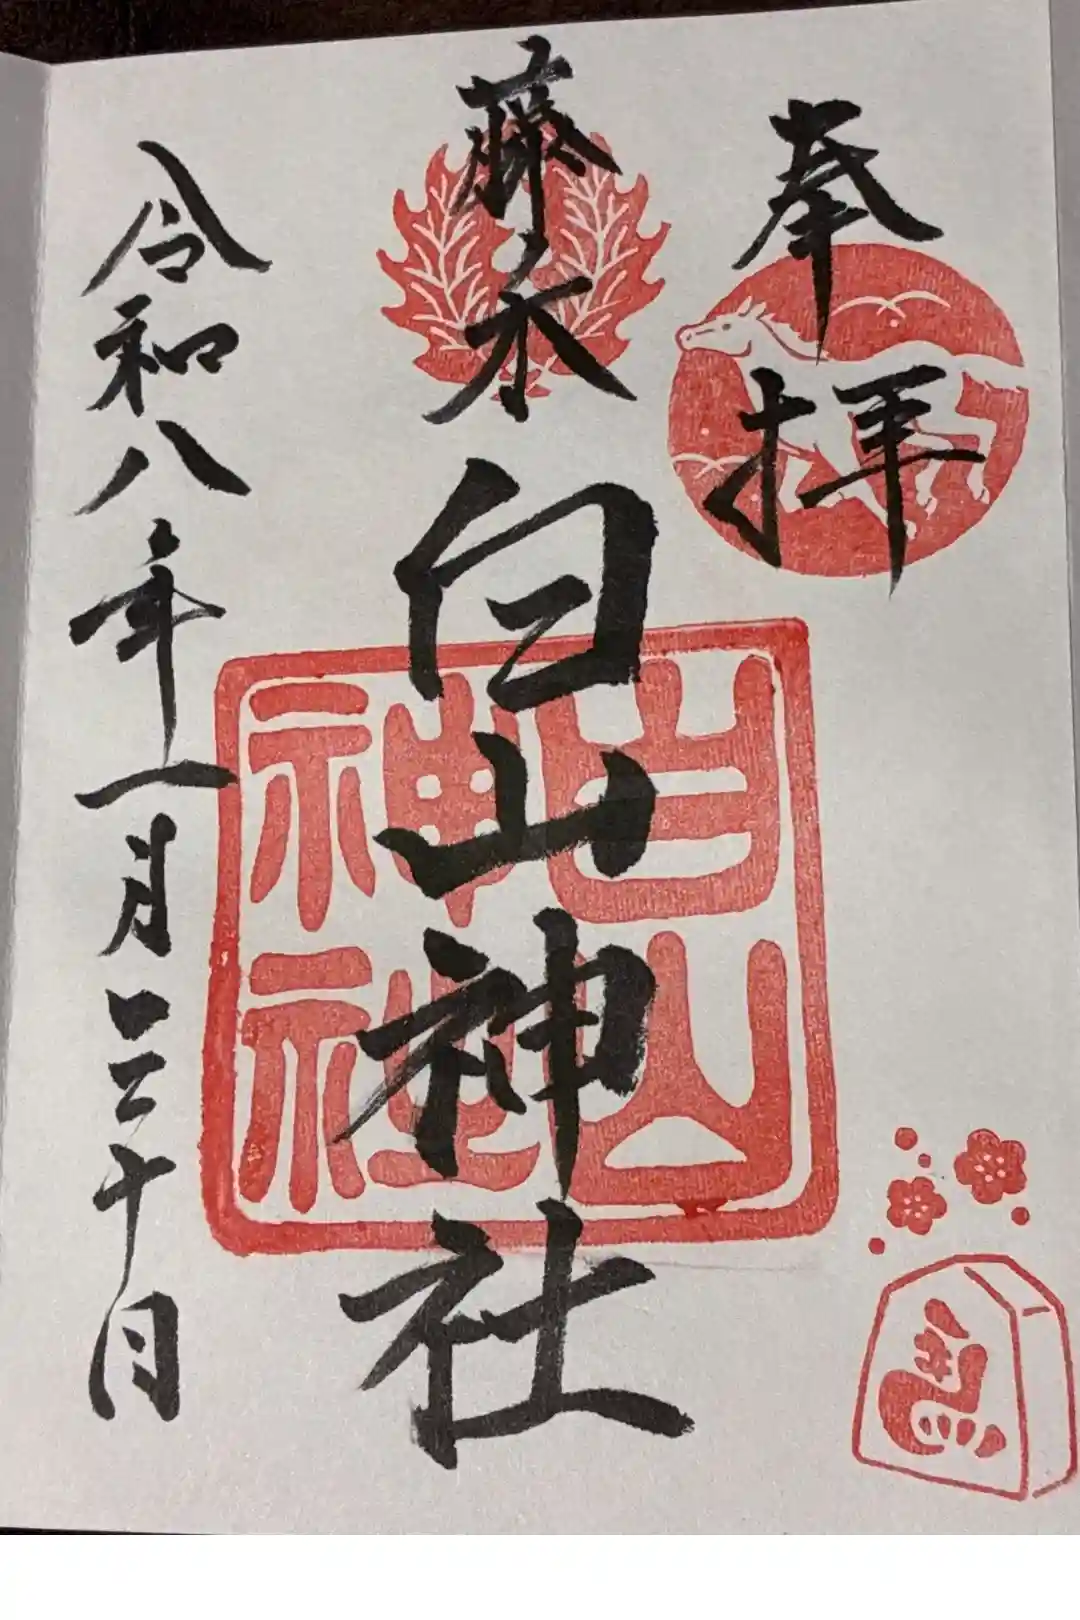 奉拝
藤木
白山神社
白山神社
令和八年一月三十日
馬